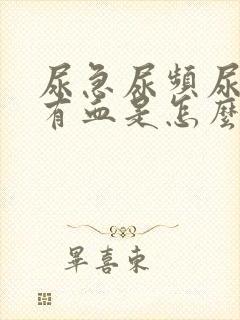 尿急尿頻尿
有血是怎麼
畢喜東